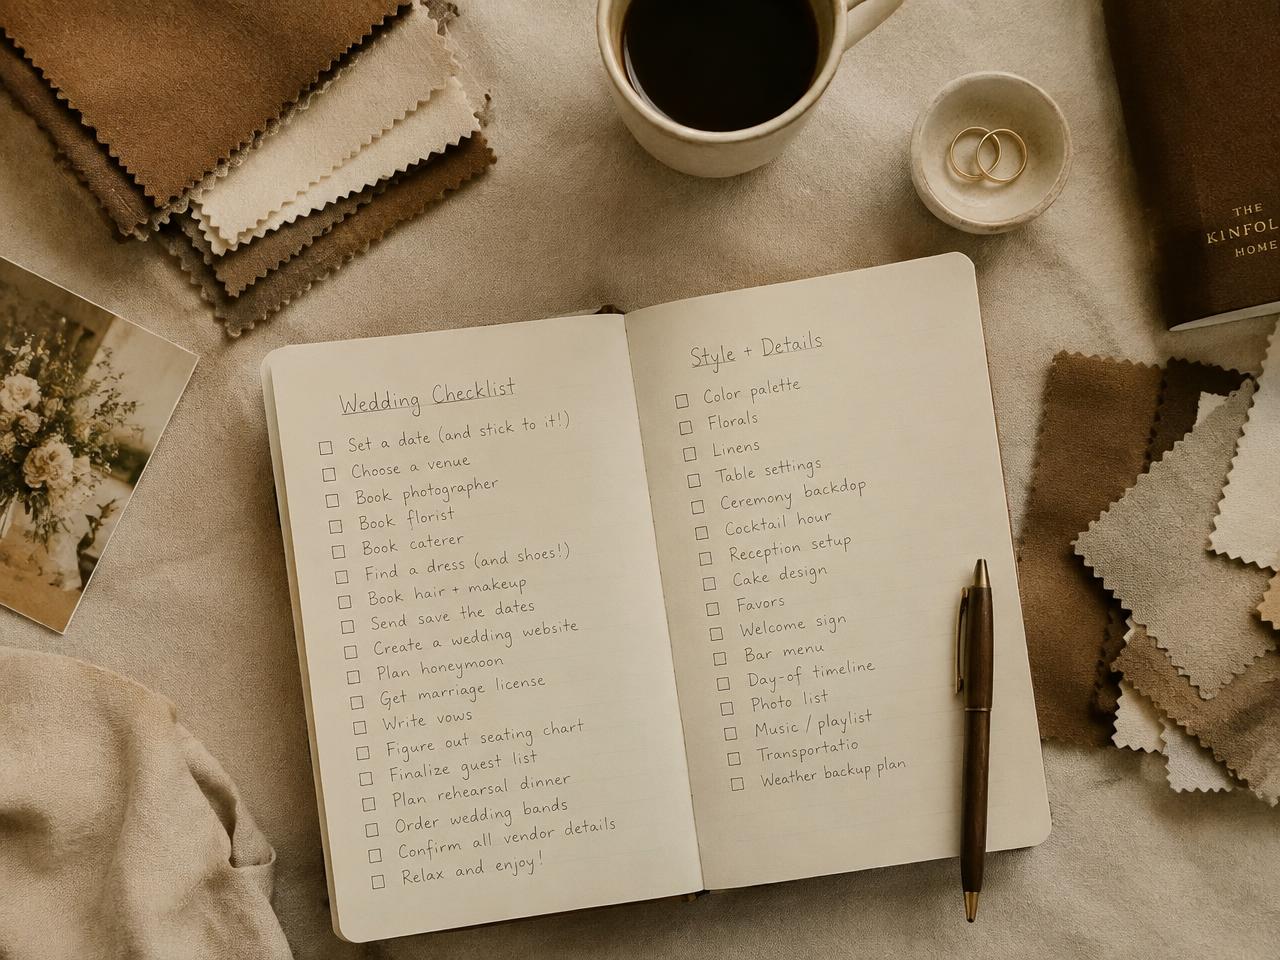 Wedding Checklist
Set a date (and stick to it!)
Choose a venue
Book photographer
Book florist
Book caterer
Find a dress (and shoes!)
Book hair + makeup
Send save the dates
Create a wedding website
Plan honeymoon
Get marriage license
Write vows
Figure out seating chart
Finalize guest list
Plan rehearsal dinner
Order wedding bands
Confirm all vendor details
Relax and enjoy!
Style + Details
Color palette
Florals
Linens
Table settings
Ceremony backdop
Cocktail hour
Reception setup
Cake design
Favors
Welcome sign
Bar menu
Day-of timeline
Photo list
Music / playlist
Transportatio
Weather backup plan
THE
KINFOL
HOME